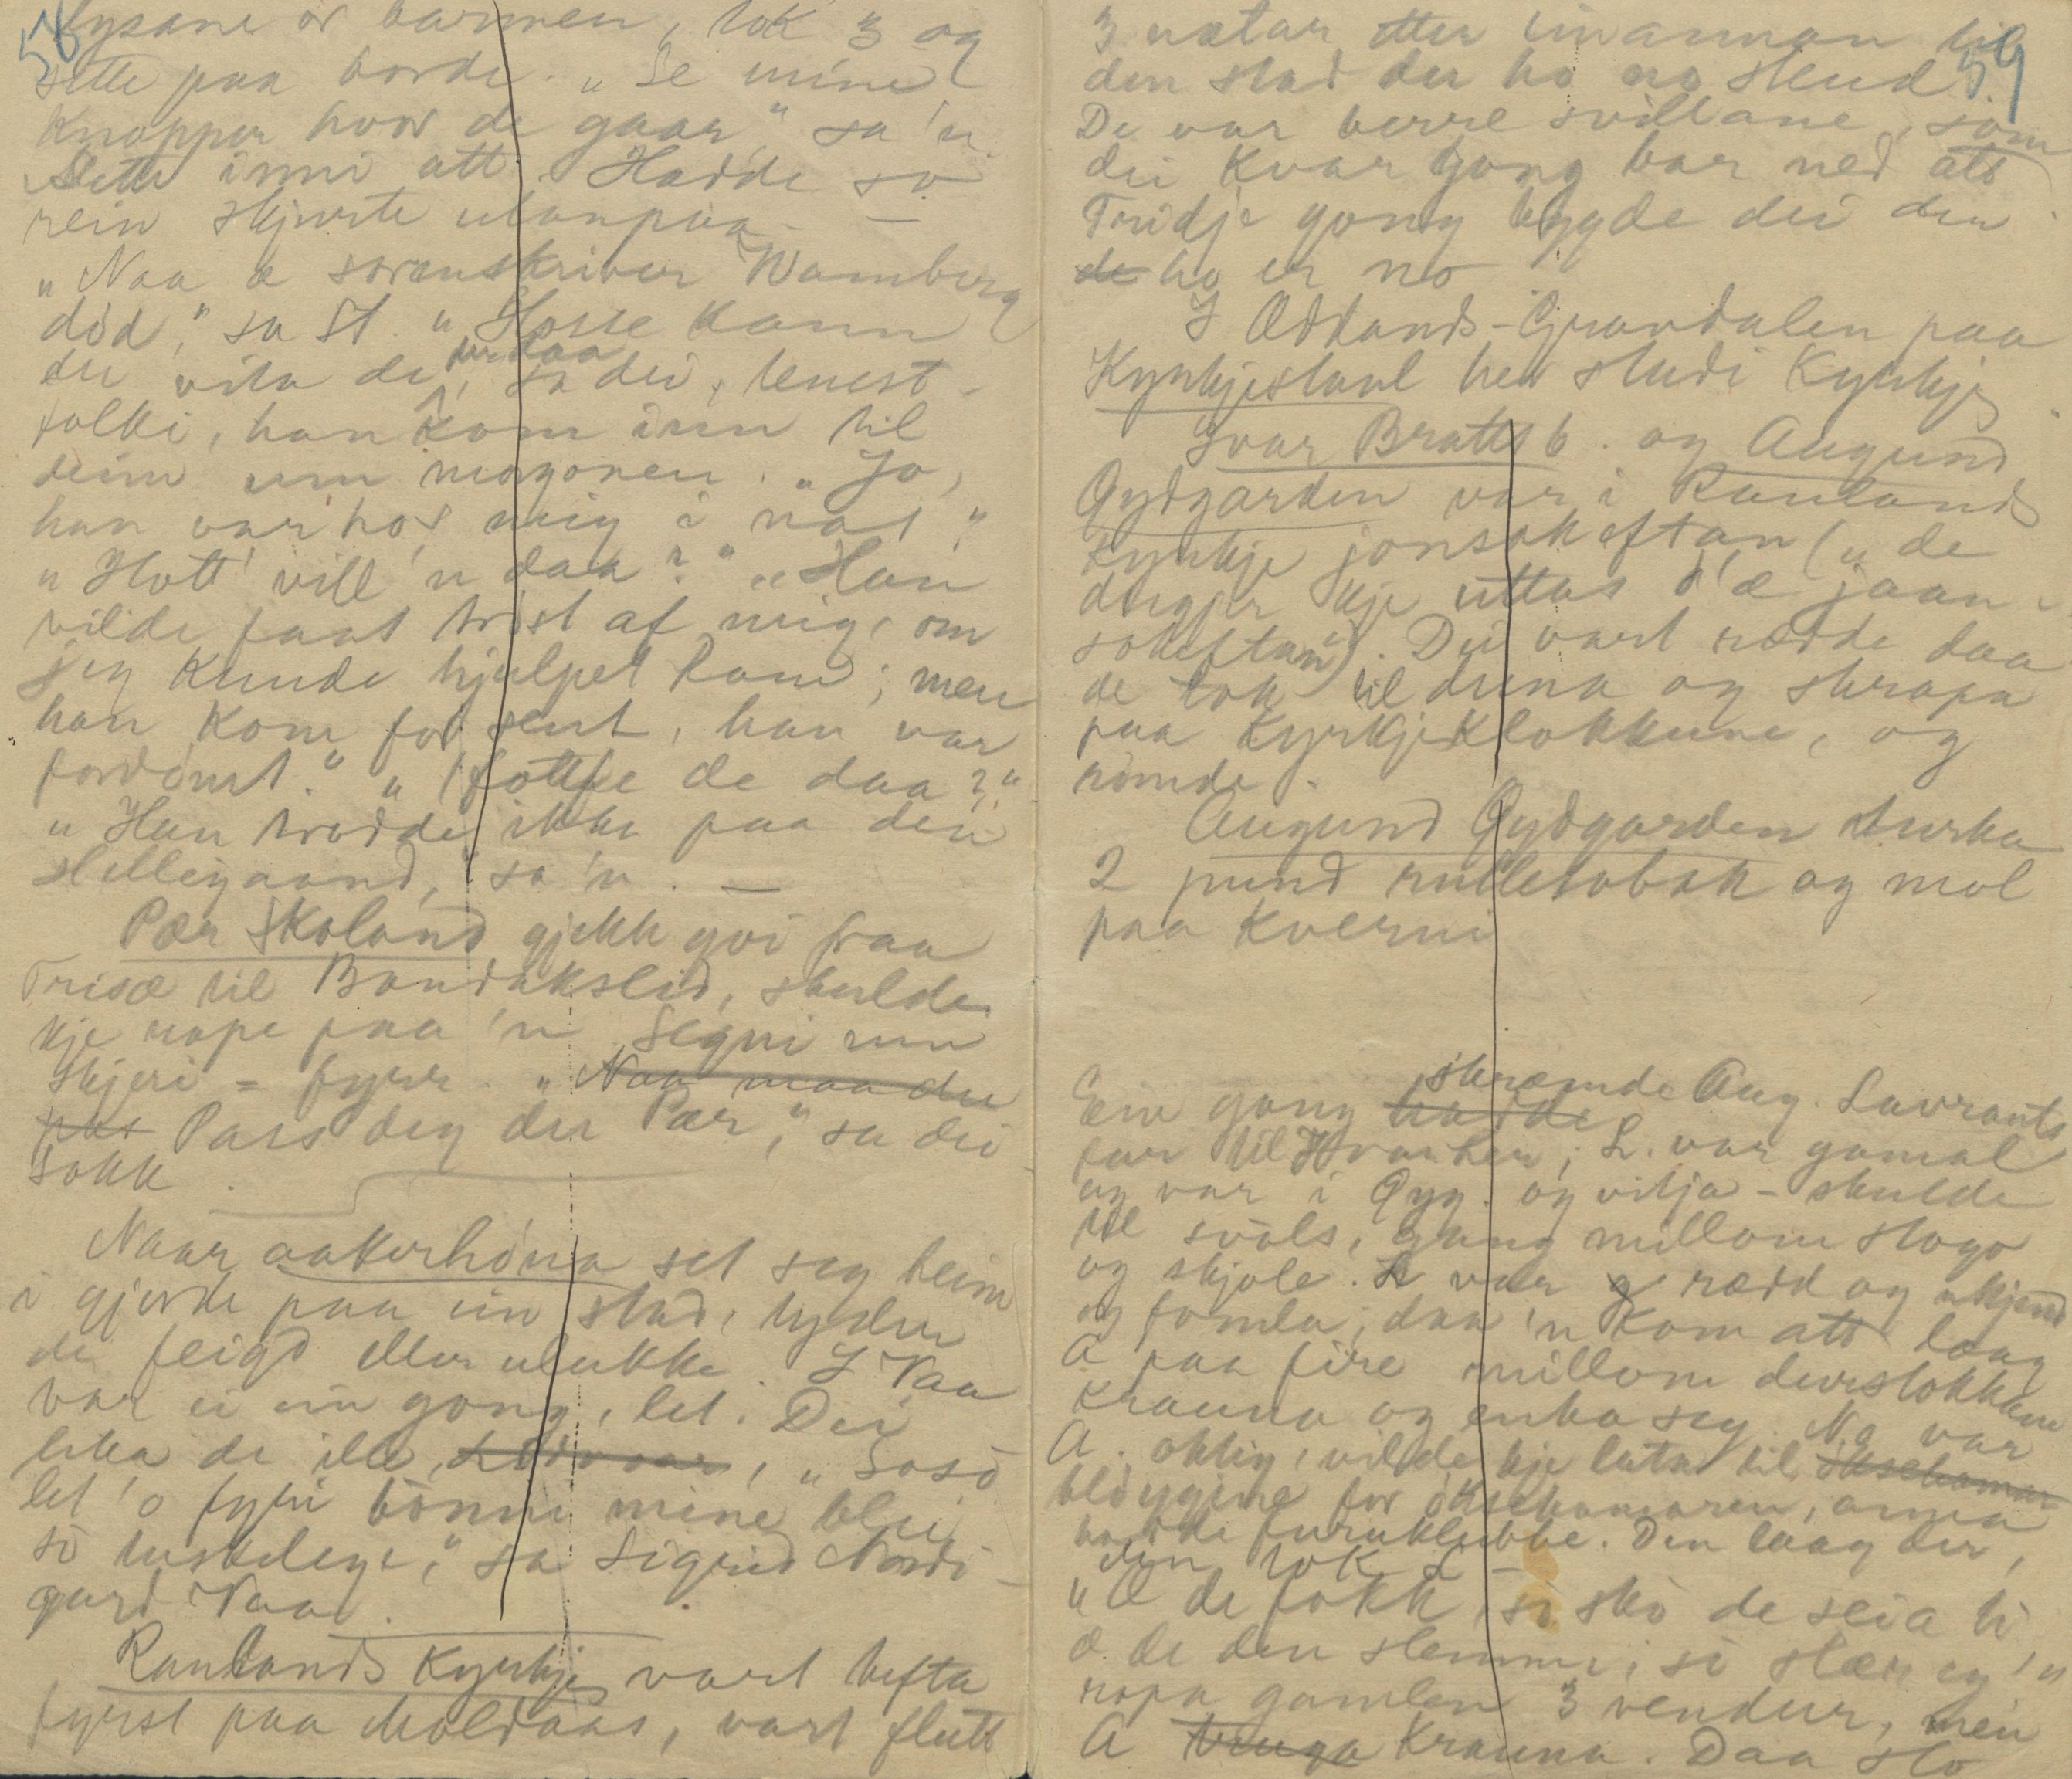 58
lysane or barmen, tok 3 og
sette paa borde. „Se mine
Knappar hvor de gaar," sa 'n.
Sette inni att. Hadde so
rein skjurte utanpaa. —
„Naa æ sorenskriver Wamberg
död," sa St. „Hosse kann
du vita de, daa sa dei, tenest-
folki, han kom inn til
deim um morgonen. „Jo,
han var hos mig i nat."
„Hott vill 'n daa?" „Han
vilde faat tröst af mig, om
jeg kunde hjulpet ham; men
han kom for sent, han var
fordömt." „ de daa?"
„Han trodde ikke paa den
Hellegaand," sa 'n. —
Pær Skoland gjekk ivi fraa
Trisæ til Bandakslid, skulde
kje rope paa 'n Signi um
Skjeri = fyrr. „Naa maa du
pas Pass deg du Pær," sa dei
sokk.
Naar aakerhöna set seg heim
i gjerde paa ein stad, tyder
de feigd eller ulukke. I Vaa
var ei ein gong, let. Dei
lika de ille, „Sosö
let 'o fyri bönni mine blei
so tuskelege," sa Sigrid Nordi-
gard Vaa.
Raulands Kyrkje vart tufta
fyrst paa Moldaas, vart flutt
59
3 nætar etter einannan til
den stad der ho no stend.
De var berre svillane, som
dei kvar gong bar ned att
Tridje gong bygde dei den
de ho er no
I Oddands-Grandalen paa
Kyrkjestaul hev stadi Kyrkje
Ivar Brattsb. og Augund
Gydgarden var i Raulands
kyrkje jonsokeftan („de
duger kje uttas d'æ jaan-
sokeftan"). Dei vart rædde daa
de tok til duna og skrapa
paa Kyrkjeklokkune, og
römde.
Augund Gydgarden turka
2 pund rulletobak og mol
paa Kverni
Ein gong hadde skræmde Aug. Lavrants
far til Hvarhen; L. var gamal
og var i Gyg. og vitja - skulde
til svåls, gang millom stogo
og skjole. L var g rædd og ukjend
og fomla; daa 'n kom att laag
A paa fire millom durstokkane
krauna og enka seg. No var
A. oklig, vilde kje lata til öksehamar
blöygine for öksehamaren, annan
hadde furuklubbe. Den laag der,
den tok L —
„Æ de fokk, so sko de seia ti
æ de den slemme, so slær eg 'n
ropa gamlen 3 vendur, men
A truga krauna. Daa slo